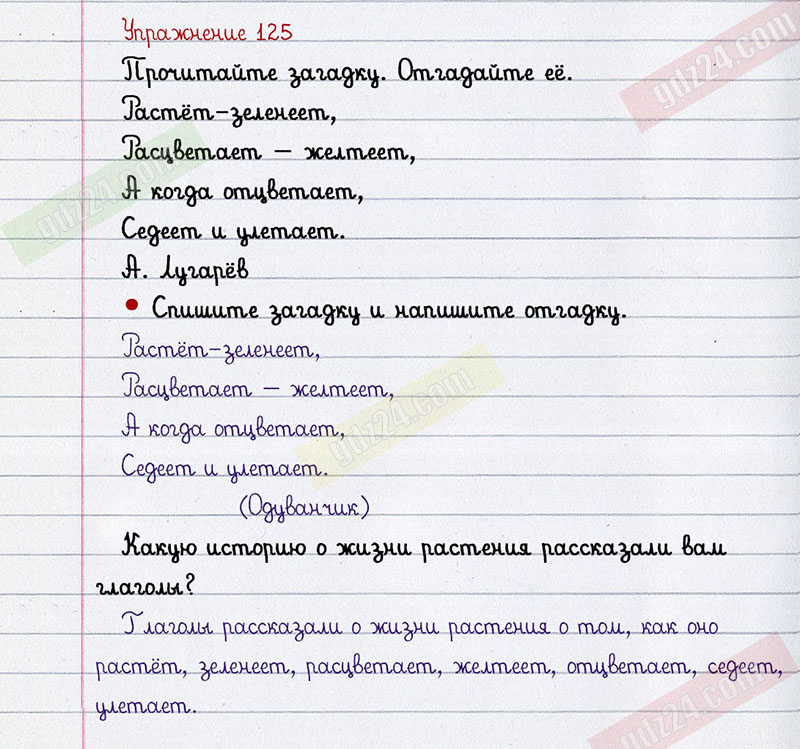 Упражнение 125
Прочитайте загадку. Отгадайте её.
Растёт-зеленеет,
Расцветает — желтеет,
А когда отцветает,
Седеет и улетает.
А. Лугарёв
• Спишите загадку и напишите отгадку.
Растёт-зеленеет,
Расцветает — желтеет,
А когда отцветает,
Седеет и улетает.
(Одуванчик)
Какую историю о жизни растения рассказали вам
глаголы?
Глаголы рассказали о жизни растения о том, как оно
растёт, зеленеет, расцветает, желтеет, отцветает, седеет,
улетает.
gdz24.com
gdz24.com
gdz24.com
gdz24.com